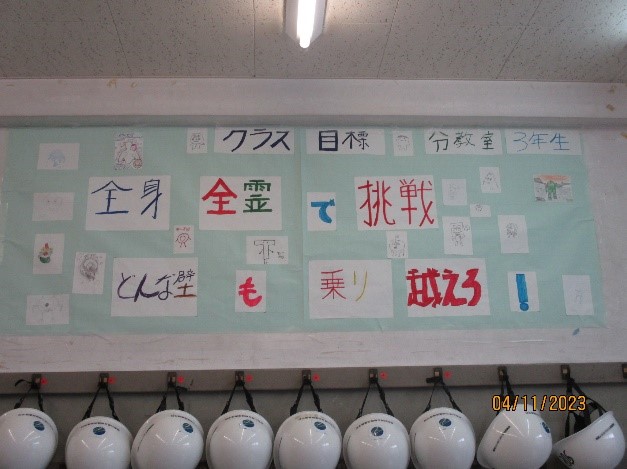 クラス 目標 分教室 3年生
全身 全霊 で 挑戦
どんな壁 も 乗り 越えろ !
04/11/2023